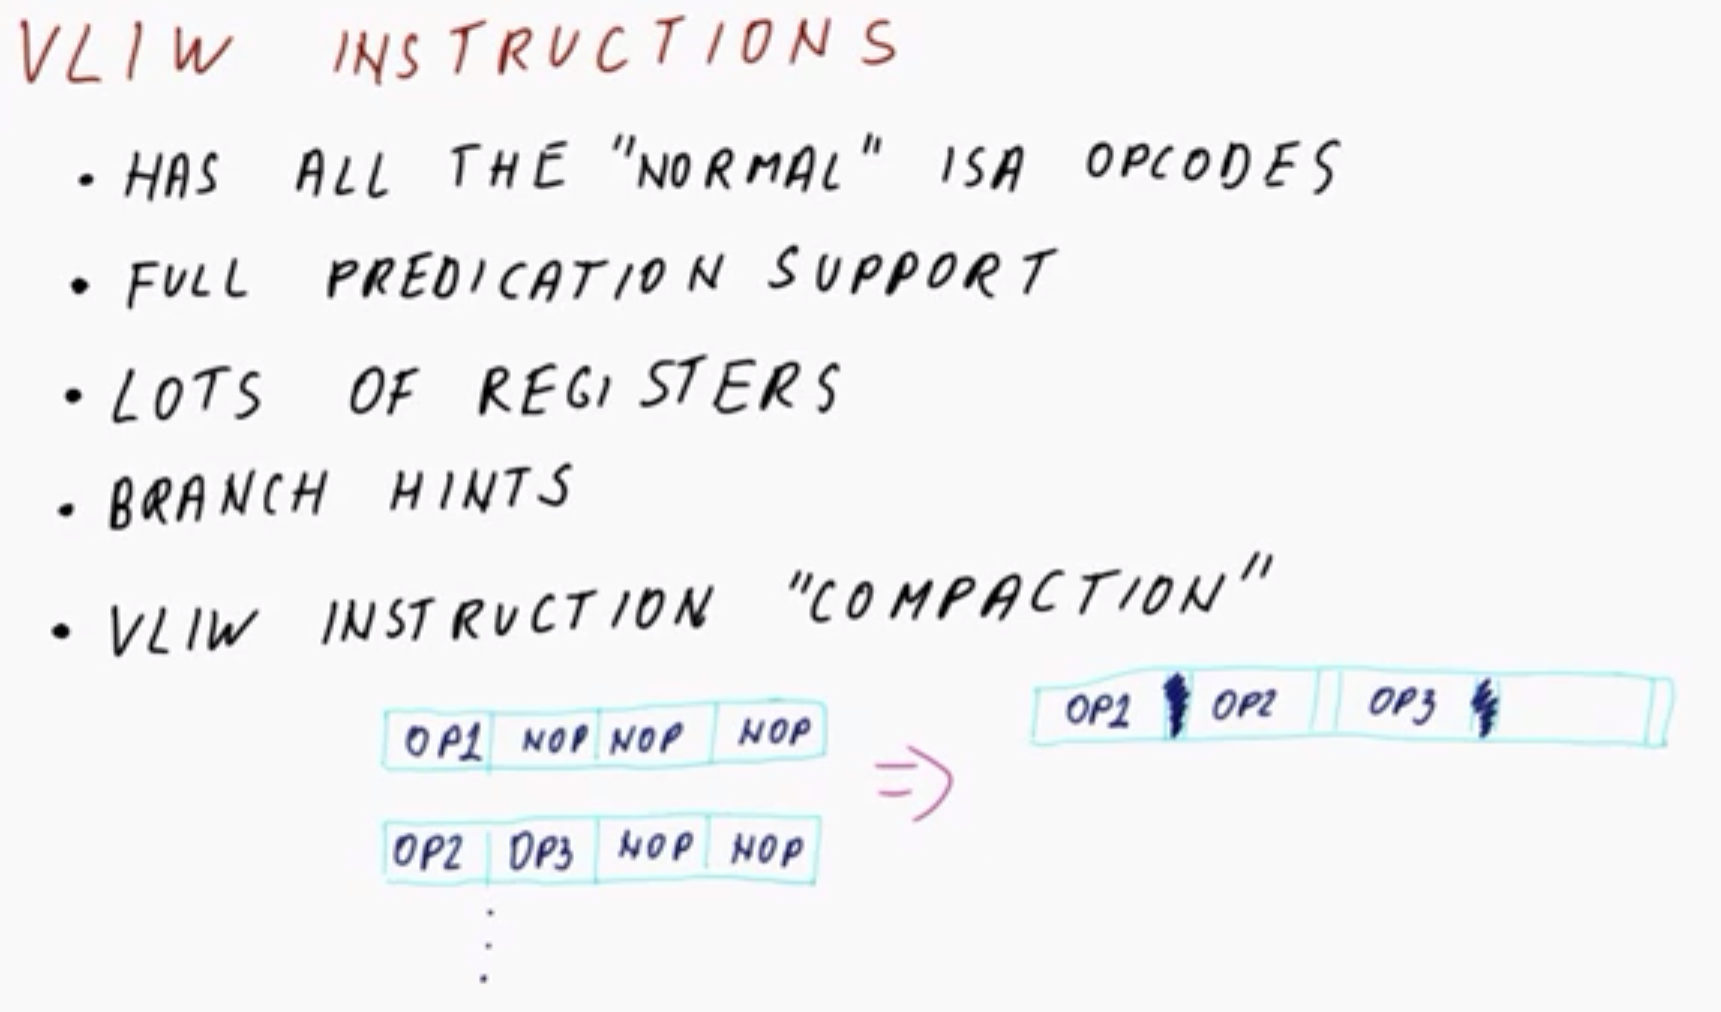 VLIW INSTRUCTIONS
• HAS ALL THE "NORMAL" ISA OPCODES
• FULL PREDICATION SUPPORT
• LOTS OF REGISTERS
• BRANCH HINTS
• VLIW INSTRUCTION "COMPACTION"
OP1 NOP NOP NOP => OP1 OP2 OP3
OP2 OP3 NOP NOP